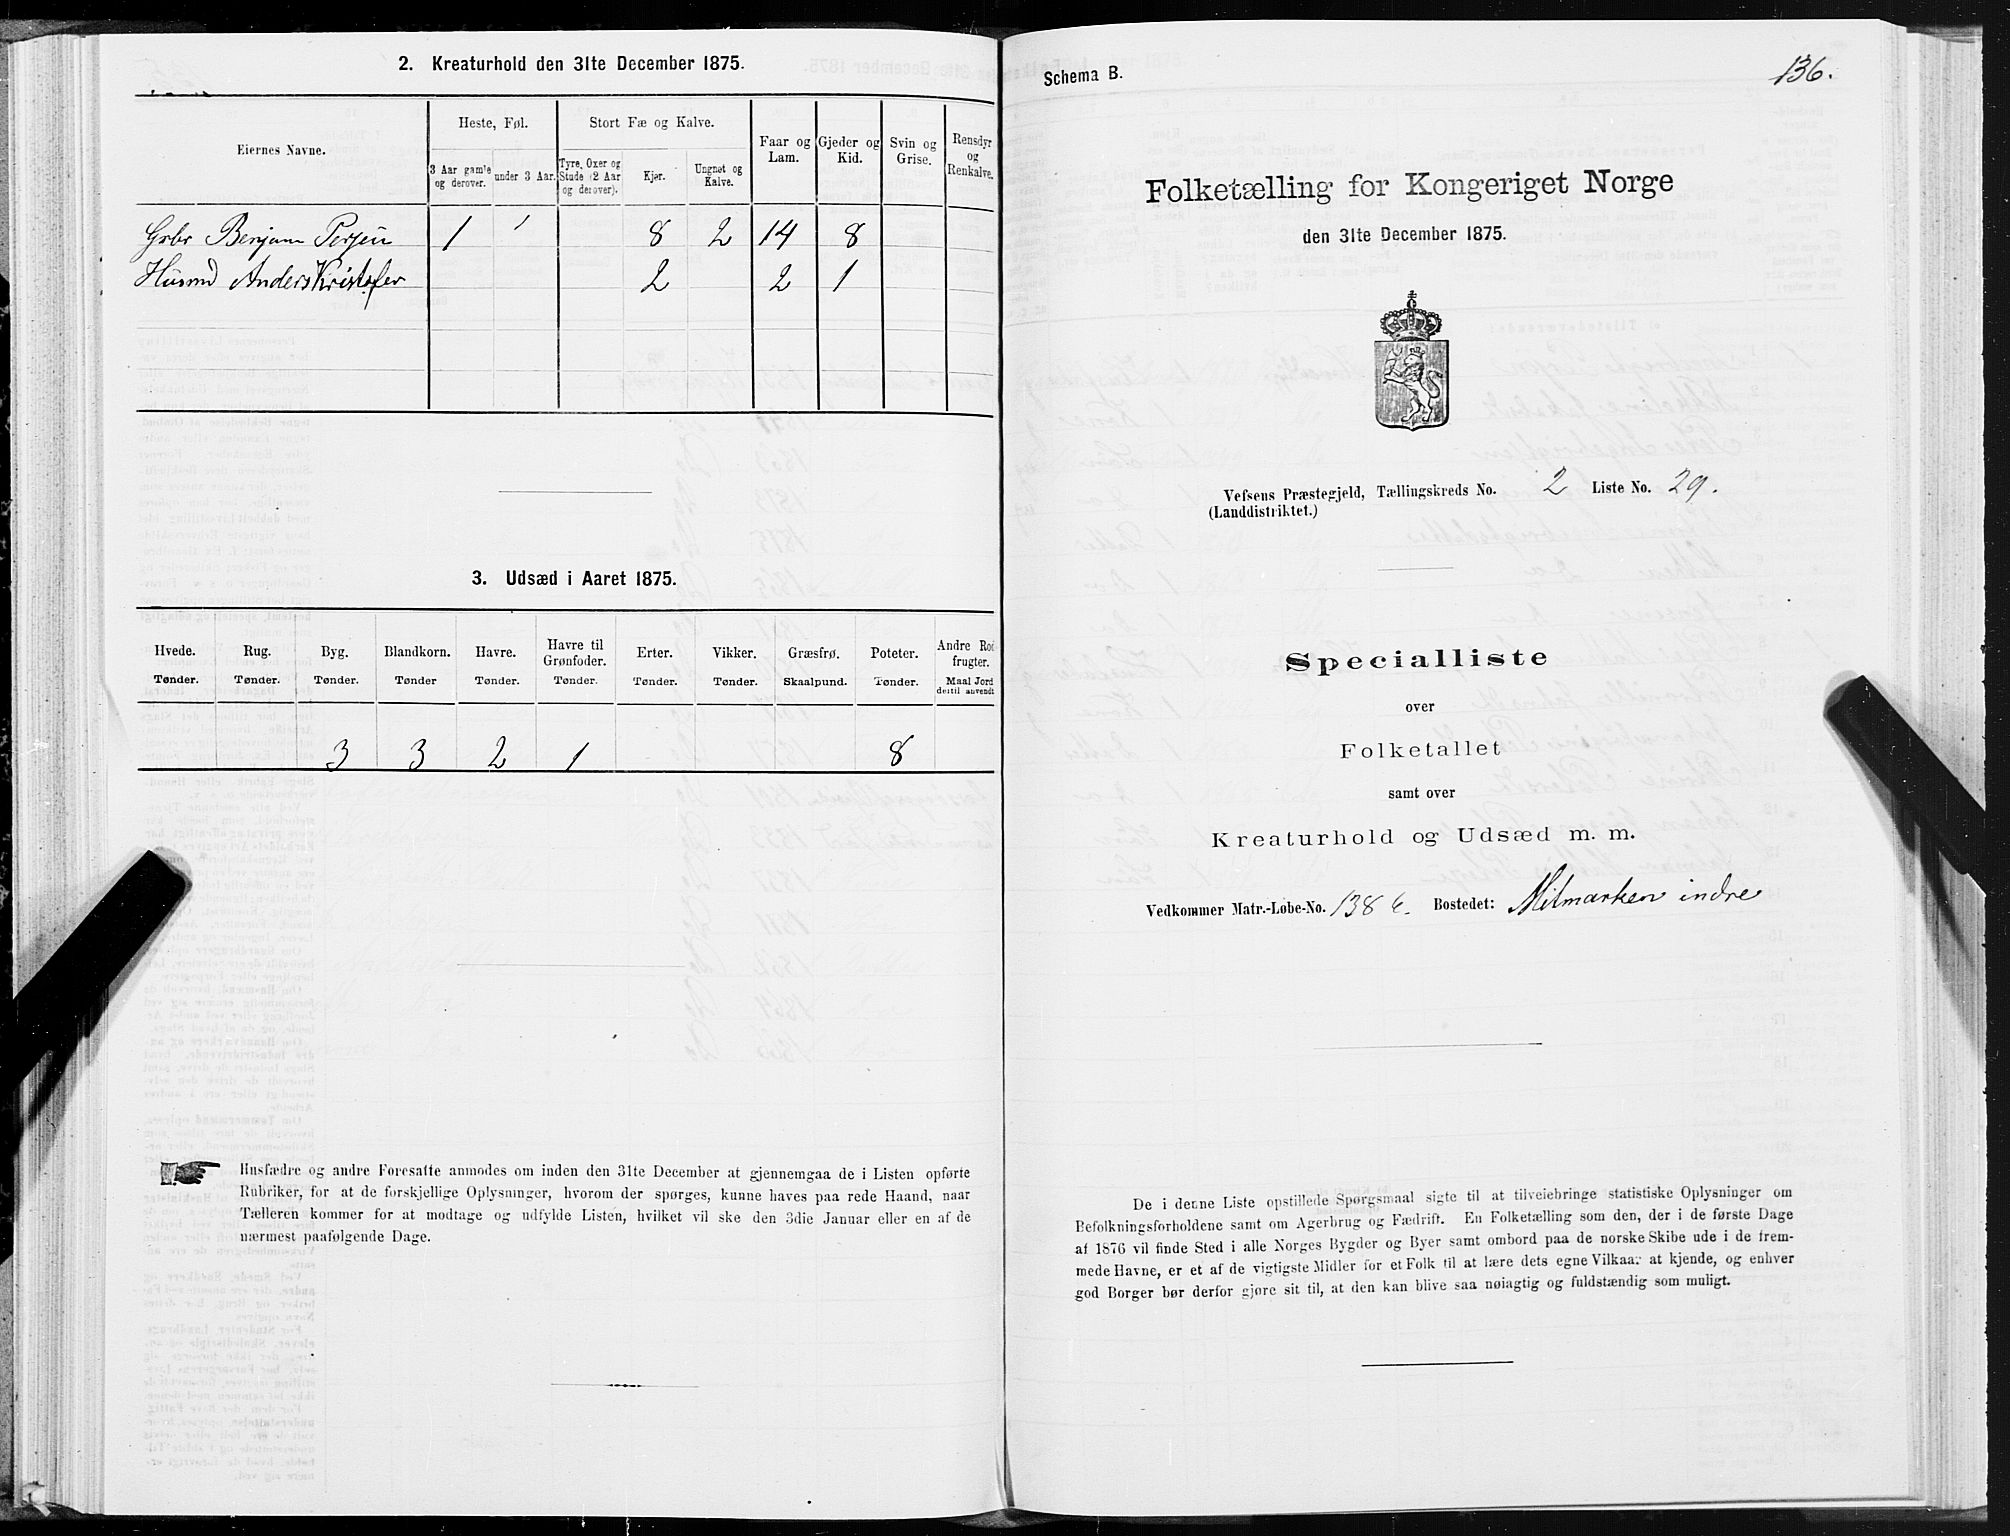 2. Kreaturhold den 31te December 1875.
Eiernes Navne.
Heste, Føl.
Stort Fæ og Kalve.
Faar og Lam.
Gjeder og Kid.
Svin og Grise.
Rensdyr og Renkalve.
3 Aar gamle og derover.
under 3 Aar.
Tyre, Oxer og Stude (2 Aar og derover).
Kjør.
Ungnøt og Kalve.
Gbr Benjam Persen 1 1 8 2 14 8
Husmd Anders Kristofer 2 2 1
3. Udsæd i Aaret 1875.
Hvede. Rug. Byg. Blandkorn. Havre. Havre til Grønfoder. Erter. Vikker. Græsfrø. Poteter. Andre Rodfrugter.
Tønder. Tønder. Tønder. Tønder Tønder. Tønder. Tønder. Tønder. Skaalpund. Tønder. Maal Jord dertil anvendt
3 3 2 1 8
Husfædre og andre Foresatte anmodes om inden den 31te December at gjennemgaa de i Listen opførte
Rubriker, for at de forskjellige Oplysninger, hvorom der spørges, kunne haves paa rede Haand, naar
Tælleren kommer for at modtage og udfylde Listen, hvilket vil ske den 3die Januar eller en af de
nærmest paafølgende Dage.
136.
Schema B.
Folketælling for Kongeriget Norge
den 31te December 1875.
Vefsens Præstegjeld, Tællingskreds No. 2 Liste No. 29.
(Landdistriktet.)
Specialliste
over
Folketallet
samt over
Kreaturhold og Udsæd m. m.
Vedkommer Matr.-Løbe-No. 138 Bostedet: Mitmarken indre
De i denne Liste opstillede Spørgsmaal sigte til at tilveiebringe statistiske Oplysninger om
Befolkningsforholdene samt om Agerbrug og Fædrift. En Folketælling som den, der i de første Dage
af 1876 vil finde Sted i alle Norges Bygder og Byer samt ombord paa de norske Skibe ude i de frem-
mede Havne, er et af de vigtigste Midler for et Folk til at lære dets egne Vilkaar at kjende, og enhver
god Borger bør derfor gjøre sit til, at den kan blive saa nøiagtig og fuldstændig som muligt.